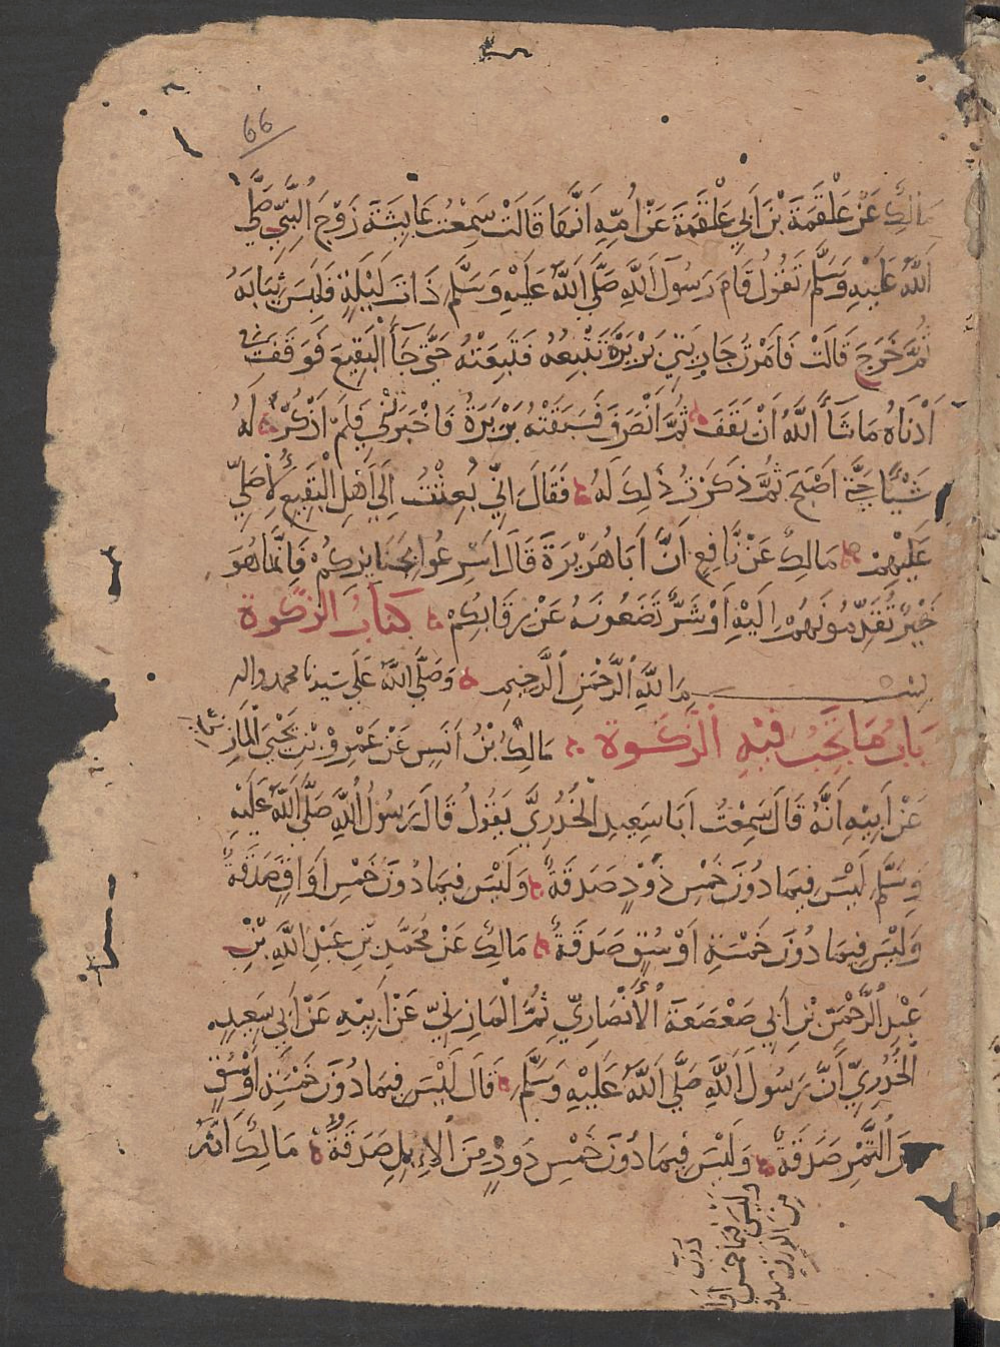 66
مَالِكٌ عَنْ عَلْقَمَةَ بْنِ اَبِي عَلْقَمَةَ عَنْ اُمِّهِ اَنَّهَا قَالَتْ سَمِعْتُ عَايِشَةَ زَوْجَ النَّبِيِّ صَلَّى
اَللَّهُ عَلَيْهِ وَسَلَّمَ تَقُولُ قَامَ رَسُولُ اللَّهِ صَلَّى اللَّهُ عَلَيْهِ وَسَلَّمَ ذَاتَ لَيْلَةٍ فَلَبِسَ ثِيَابَهُ
ثُمَّ خَرَجَ قَالَتْ فَاَمَرْتُ جَارِيَتِي بَرِيْرَةَ تَتْبَعُهُ فَتَبِعَتْهُ حَتَّى جَآءَ الْبَقِيعَ فَوَقَفَ فِي
اَدْنَاهُ مَا شَآءَ اللَّهُ اَنْ يَقِفَ ثُمَّ اَنْصَرَفَ فَسَبَقَتْهُ بَرِيْرَةُ فَاَخْبَرَتْنِي فَلَمْ اَذْكُرْ لَهُ
شَيْئًا حَتَّى اَصْبَحَ ثُمَّ ذَكَرْتُ ذٰلِكَ لَهُ فَقَالَ اِنِّي بُعِثْتُ اِلَى اَهْلِ الْبَقِيعِ لِاُصَلِّيَ
عَلَيْهِمْ مَالِكٌ عَنْ نَّافِعٍ اَنَّ اَبَا هُرَيْرَةَ قَالَ اَسْرِعُوا بِجَنَايِزِكُمْ فَاِنَّمَا هُوَ
خَيْرٌ تُقَدِّمُونَهُمْ اِلَيْهِ اَوْ شَرٌّ تَضَعُونَهُ عَنْ رِقَابِكُمْ كِتَابُ الزَّكٰوة
بِسْــــمِ اللَّهِ الرَّحْمٰنِ الرَّحِيمِ وَصَلَّى اللَّهُ عَلَى سَيِّدِنَا مُحَمَّدٍ وَاٰلِهِ
بَابُ مَا تَجِبُ فِيْهِ الزَّكٰوة مَالِكُ بْنُ اَنَسٍ عَنْ عَمْرِو بْنِ يَحْيَى الْمَازِنِيِّ
عَنْ اَبِيْهِ اَنَّهُ قَالَ سَمِعْتُ اَبَا سَعِيدٍ الْخُدْرِيَّ يَقُولُ قَالَ رَسُولُ اللَّهِ صَلَّى اللَّهُ عَلَيْهِ
وَسَلَّمَ لَيْسَ فِيمَا دُونَ خَمْسِ ذَوْدٍ صَدَقَةٌ وَلَيْسَ فِيمَا دُونَ خَمْسِ اَوَاقٍ صَدَقَةٌ
وَلَيْسَ فِيمَا دُونَ خَمْسَةِ اَوْسُقٍ صَدَقَةٌ مَالِكٌ عَنْ مُحَمَّدِ بْنِ عَبْدِ اللَّهِ بْنِ
عَبْدِ الرَّحْمٰنِ بْنِ اَبِي صَعْصَعَةَ الْاَنْصَارِيِّ ثُمَّ الْمَازِنِيِّ عَنْ اَبِيْهِ عَنْ اَبِي سَعِيدٍ
الْخُدْرِيِّ اَنَّ رَسُولَ اللَّهِ صَلَّى اللَّهُ عَلَيْهِ وَسَلَّمَ قَالَ لَيْسَ فِيمَا دُونَ خَمْسَةِ اَوْسُقٍ
مِنَ التَّمْرِ صَدَقَةٌ وَلَيْسَ فِيمَا دُونَ خَمْسِ ذَوْدٍ مِنَ الْاِبِلِ صَدَقَةٌ مَالِكٌ اَنَّهُ
وليس فيما دون
خمس اواق
من الورق